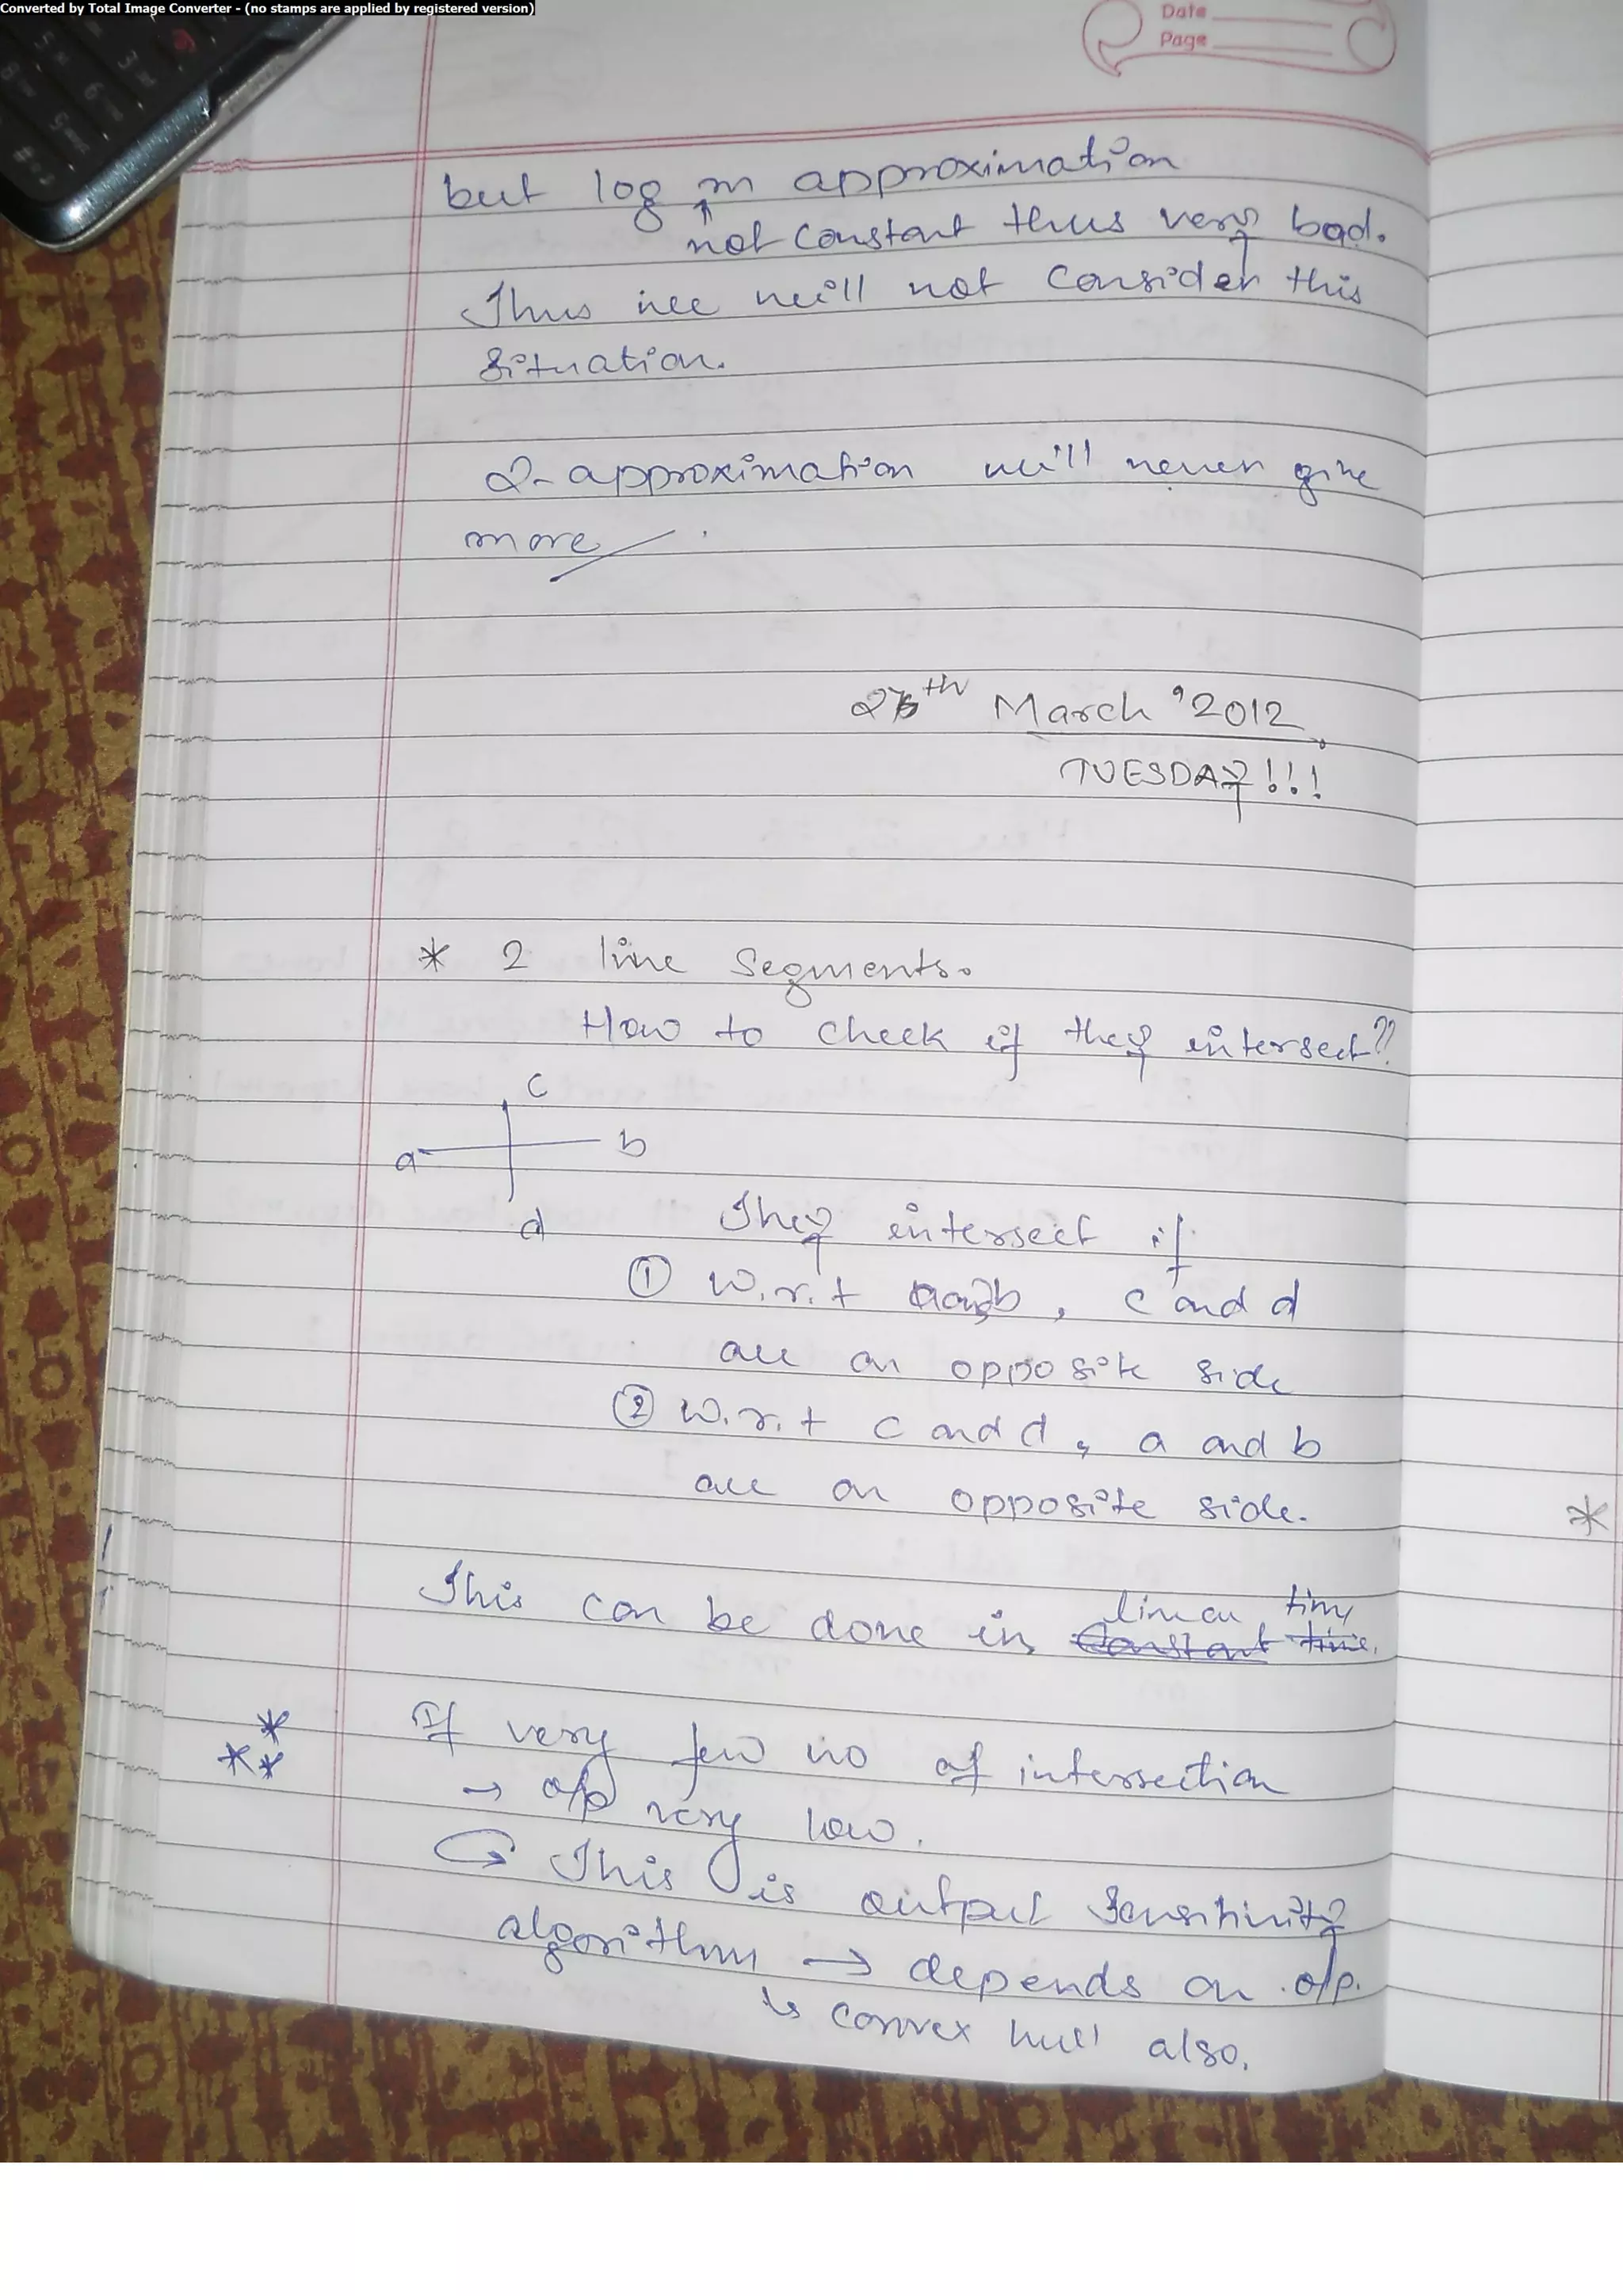 Converted by Total Image Converter - (no stamps are applied by registered version)
Date
Page
but log m approximation
not constant thus very bad.
Thus we will not consider this
situation.
2-approximation will never give
more
th March '2012
TUESDAY!!!
* 2 line segments.
How to check if they intersect??
c
a b
d
They intersect if
① w.r.t b, c and d
are on opposite side
② w.r.t c and d, a and b
are on opposite side.
linear time
This can be done in constant time.
*
** If very few no of intersection
→ o/p very low.
This is output sensitivity
algorithm → depends on o/p.
↳ convex hull also.
*